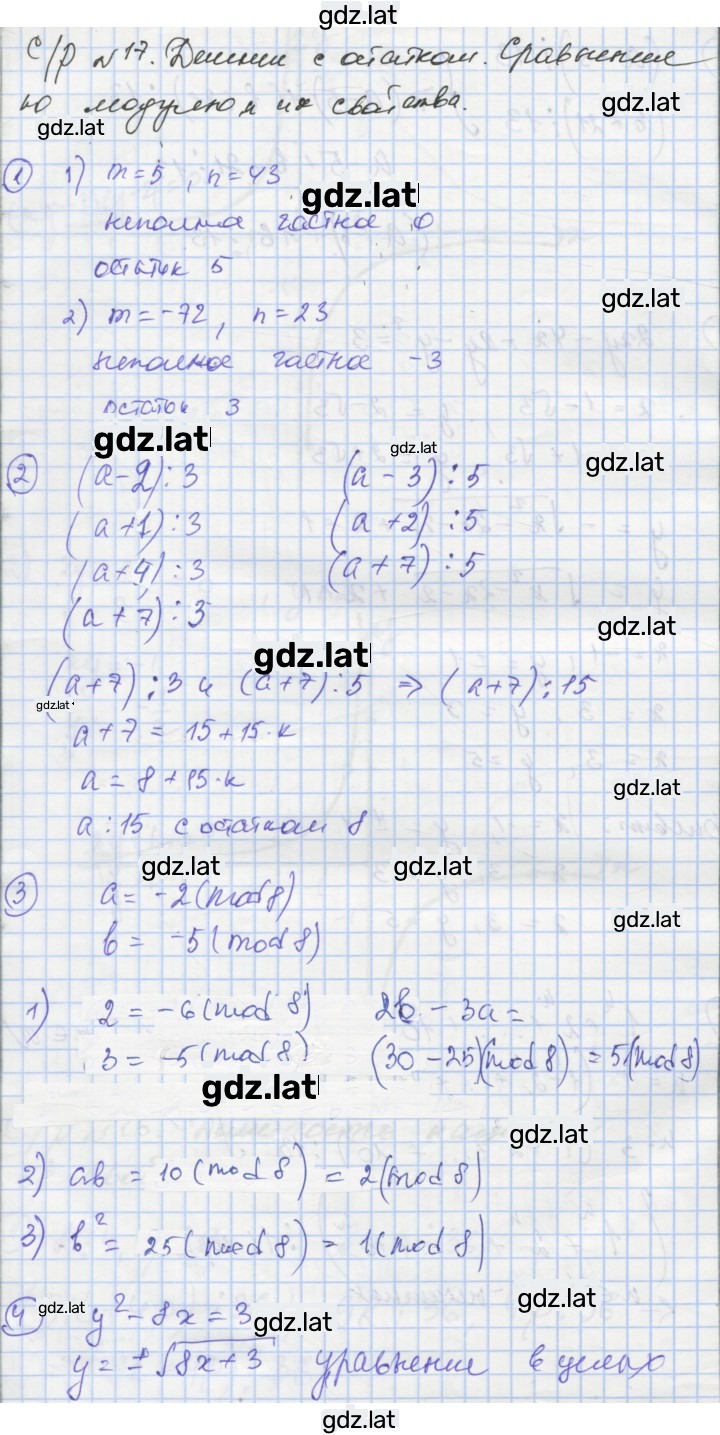 gdz.lat
С/р №17. Деление с остатком. Сравнение
gdz.lat
по модулю и их свойства.
gdz.lat
① 1) m=5, n=43
gdz.lat
неполное частное 0
остаток 5
gdz.lat
2) m=-72, n=23
неполное частное -3
остаток 3
gdz.lat
gdz.lat
gdz.lat
② (a-2)⋮3 (a-3)⋮5
(a+1)⋮3 (a+2)⋮5
(a+4)⋮3 (a+7)⋮5
(a+7)⋮3
gdz.lat
gdz.lat
(a+7)⋮3 и (a+7)⋮5 ⇒ (a+7)⋮15
gdz.lat
a+7 = 15+15·k
a = 8+15·k
gdz.lat
a:15 с остатком 8
gdz.lat gdz.lat
③ a = -2(mod 8)
gdz.lat
b = -5(mod 8)
1) 2 = -6(mod 8) 2b - 3a =
3 = -5(mod 8) (30-25)(mod 8) = 5(mod 8)
gdz.lat
gdz.lat
2) ab = 10(mod 8) = 2(mod 8)
3) b² = 25(mod 8) = 1(mod 8)
gdz.lat
④ gdz.lat y²-8x=3
gdz.lat
y=±√8x+3 уравнение в целых
gdz.lat